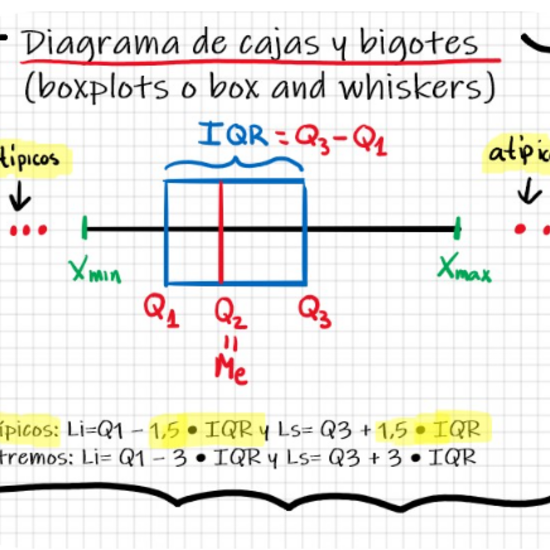 Diagrama de cajas y bigotes
(boxplots o box and whiskers)
IQR = Q3 - Q1
típicos
atípic
Xmin
Xmax
Q1 Q2 Q3
=
Me
ípicos: Li=Q1 - 1,5 • IQR y Ls= Q3 + 1,5 • IQR
tremos: Li= Q1 - 3 • IQR y Ls= Q3 + 3 • IQR